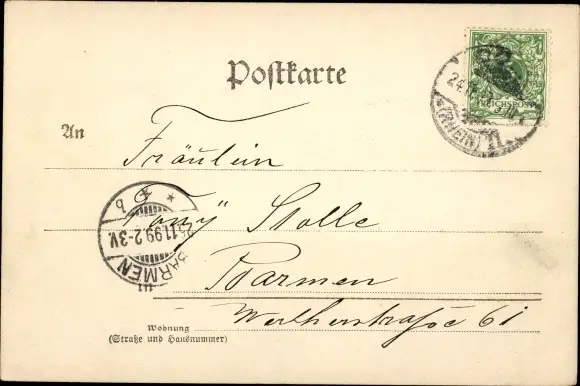 Postkarte
REICHSPOST
(RHEIN)
An
Fräulein
Tony Stolle
25.11.99.2-3V.
BARMEN
b
Barmen
Wertherstraße 61
Wohnung
(Straße und Hausnummer)